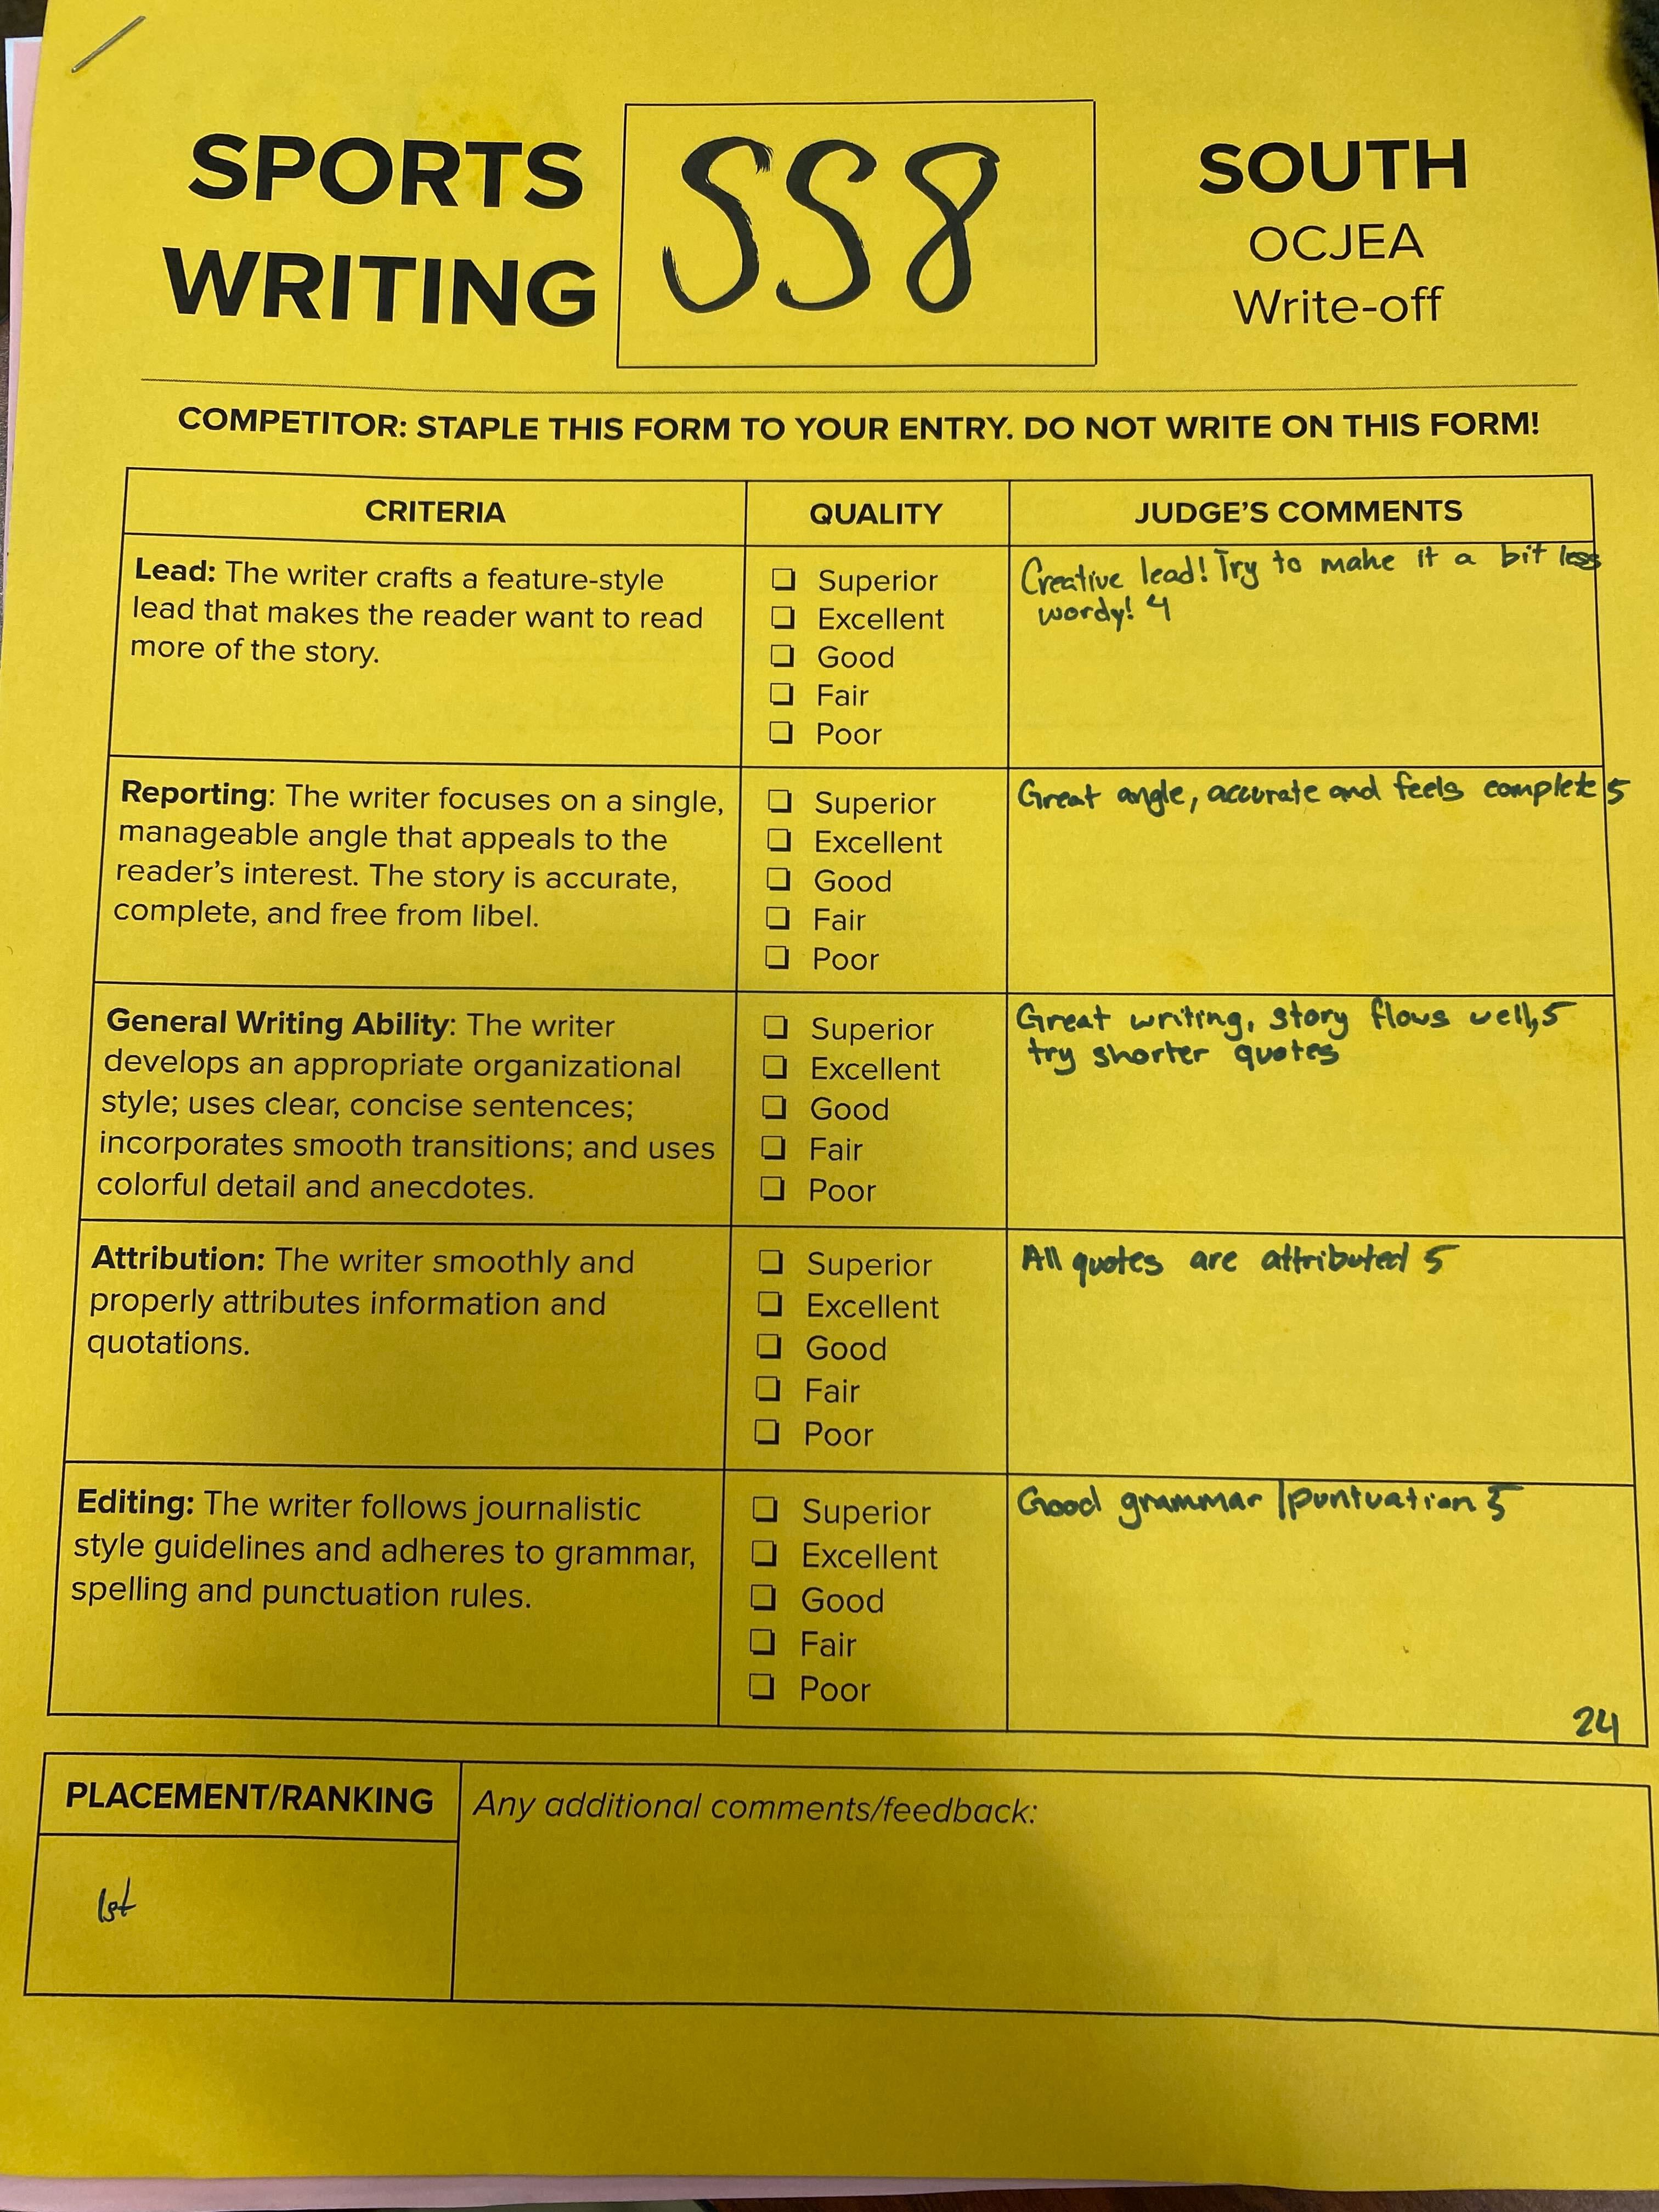 SPORTS
WRITING
SS8
SOUTH
OCJEA
Write-off
COMPETITOR: STAPLE THIS FORM TO YOUR ENTRY. DO NOT WRITE ON THIS FORM!
CRITERIA
QUALITY
JUDGE'S COMMENTS
Lead: The writer crafts a feature-style
lead that makes the reader want to read
more of the story.
❏ Superior
❏ Excellent
❏ Good
❏ Fair
❏ Poor
Creative lead! Try to make it a bit less
wordy! 4
Reporting: The writer focuses on a single,
manageable angle that appeals to the
reader's interest. The story is accurate,
complete, and free from libel.
❏ Superior
❏ Excellent
❏ Good
❏ Fair
❏ Poor
Great angle, accurate and feels complete 5
General Writing Ability: The writer
develops an appropriate organizational
style; uses clear, concise sentences;
incorporates smooth transitions; and uses
colorful detail and anecdotes.
❏ Superior
❏ Excellent
❏ Good
❏ Fair
❏ Poor
Great writing, story flows well, 5
try shorter quotes
Attribution: The writer smoothly and
properly attributes information and
quotations.
❏ Superior
❏ Excellent
❏ Good
❏ Fair
❏ Poor
All quotes are attributed 5
Editing: The writer follows journalistic
style guidelines and adheres to grammar,
spelling and punctuation rules.
❏ Superior
❏ Excellent
❏ Good
❏ Fair
❏ Poor
Good grammar/puntuation 5
24
PLACEMENT/RANKING
1st
Any additional comments/feedback: